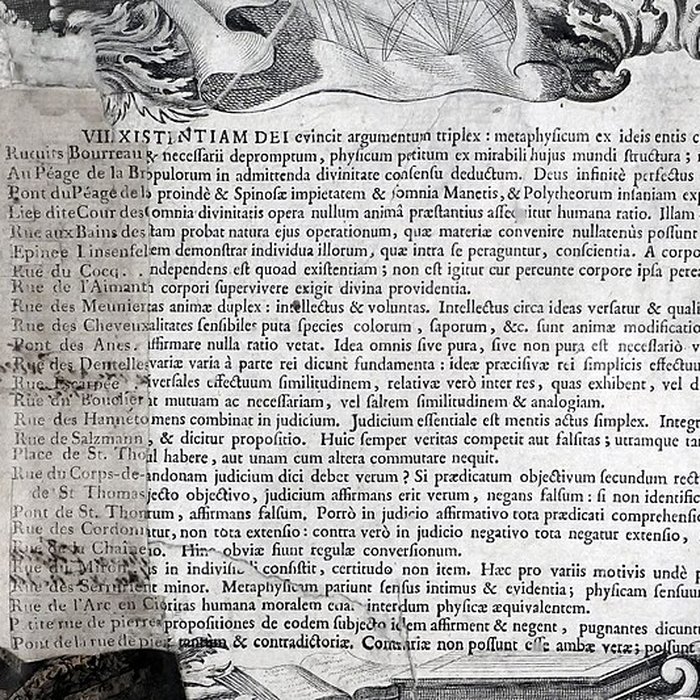 VII. XISTENTIAM DEI evincit argumentum triplex : metaphysicum ex ideis entis
Rucuits Bourreau & necessarii depromptum, physicum petitum ex mirabili hujus mundi structura ;
Au Péage de la Br opulorum in admittenda divinitate consensu deductum. Deus infinitè perfectus
Pont du Péage de la proindè & Spinosæ impietatem & somnia Manetis, & Polytheorum insaniam
Lieu dite Cour des omnia divinitatis opera nullum animâ præstantius itur humana ratio. Illam
Rue aux Bains des tam probat natura ejus operationum, quæ materiæ convenire nullatenùs possunt
Epinee Linsenfel em demonstrat individua illorum, quæ intra se peraguntur, conscientia. A corpo
Rue du Cocq. ndependens est quoad existentiam ; non est igitur cur pereunte corpore ipsa
Rue de l'Aimant h corpori supervivere exigit divina providentia.
Rue des Meunier tas animæ duplex : intellectus & voluntas. Intellectus circa ideas versatur & quali
Rue des Cheveux alitates sensibiles puta species colorum , saporum , &c. sunt animæ modificatio
Pont des Anes. affirmare nulla ratio vetat. Idea omnis sive pura, sive non pura est necessariò
Rue des Dentelle variæ varia à parte rei dicunt fundamenta : ideæ præcisivæ rei simplicis effectuu
Rue Escarpée iversales effectuum similitudinem, relativæ verò inter res, quas exhibent, vel
Rue du Bouclier at mutuam ac necessariam, vel saltem similitudinem & analogiam.
Rue des Hanneto mens combinat in judicium. Judicium essentiale est mentis actus simplex. Integr
Rue de Salzmann , & dicitur propositio. Huic semper veritas competit aut falsitas ; utramque
Place de St. Tho ul habere , aut unam cum altera commutare nequit.
Rue du Corps-de- andonam judicium dici debet verum ? Si prædicatum objectivum secundum
de St Thomas jecto objectivo, judicium affirmans erit verum, negans falsum : si non identific
Pont de St. Thom rum , affirmans falsum. Porrò in judicio affirmativo tota prædicati comprehensio
Rue des Cordon itur, non tota extensio : contra verò in judicio negativo tota negatur extensio ,
Rue de la Chaine io. Hinc obviæ fiunt regulæ conversionum.
Rue du Miroir is in indivisibili consistit, certitudo non item. Hæc pro variis motivis undè
Rue des Serrurier nt minor. Metaphysicam pariunt sensus intimus & evidentia ; physicam sensuum
Rue de l'Arc en Ci oritas humana moralem interdum physicæ æquivalentem.
P tite rue de pierre propositiones de eodem subjecto idem affirment & negent , pugnantes dicuntur
Pont de la rue de pie tantum & contradictoriæ. Contrariæ non possunt esse ambæ veræ ; possunt